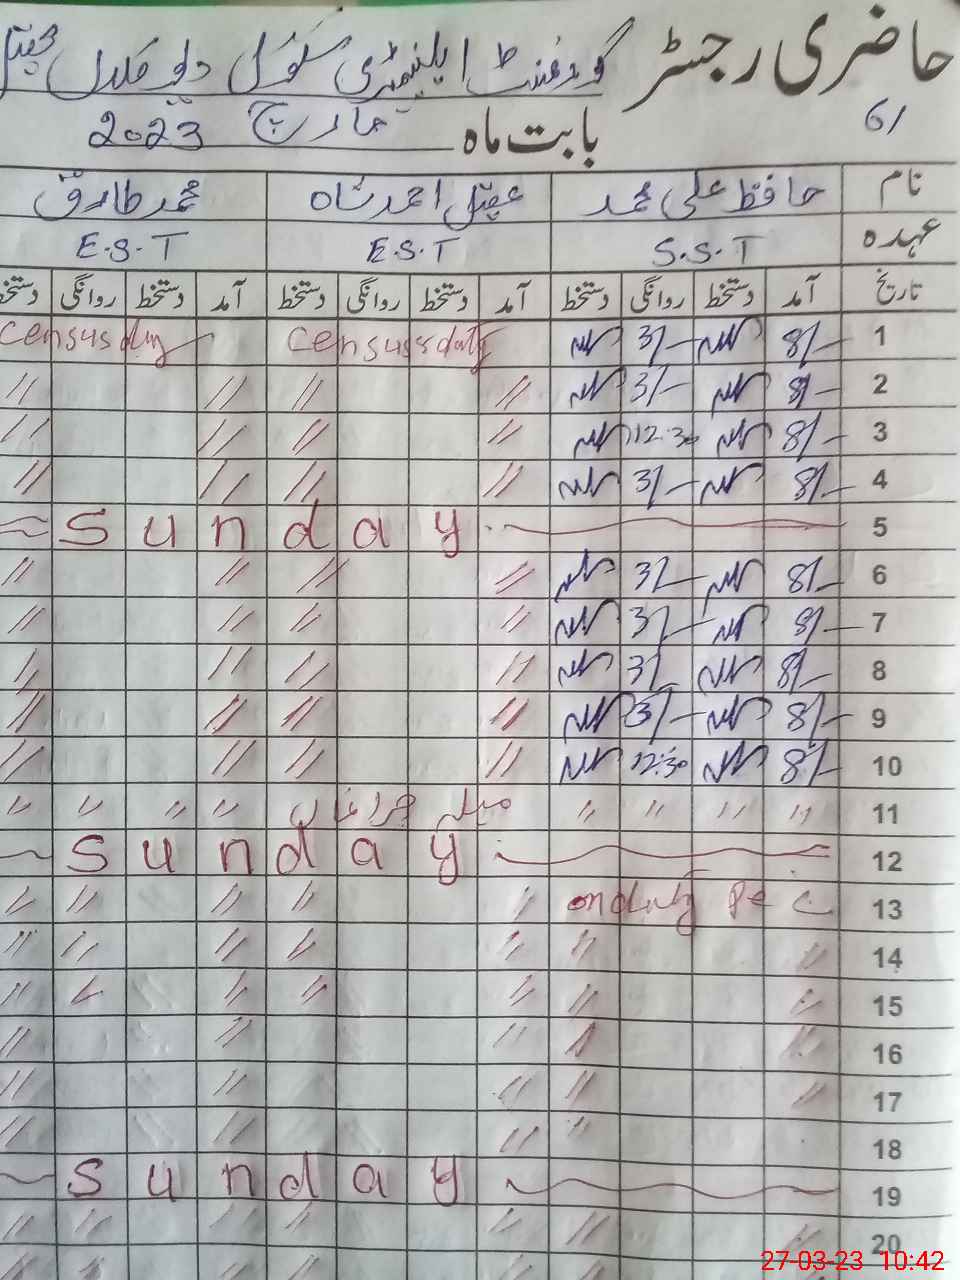 حاضری رجسٹر گورنمنٹ ایلیمنٹری سکول
61 بابت ماہ مارچ 2023
نام حافظ علی محمد عقیل احمد شاہ محمد طارق
عہدہ S.S.T E.S.T E.S.T
تاریخ آمد دستخط روانگی دستخط آمد دستخط روانگی دستخط آمد دستخط روانگی دستخط
1 8/- 3/- Census duty Census duty
2 8/- 3/- // // // //
3 8/- 12:30 // // // //
4 8/- 3/- // // // //
5 Sunday
6 8/- 3/- // // // //
7 8/- 3/- // // // //
8 8/- 3/- // // // //
9 8/- 3/- // // // //
10 8/- 12:30 // // // //
11 // // // // میلہ چراغاں // // // //
12 Sunday
13 on duty // // // // //
14 // // // // // // //
15 // // // // // // //
16 // // // // //
17 // // // // //
18 // // // //
19 Sunday
20 // // // // // // //
27-03-23 10:42